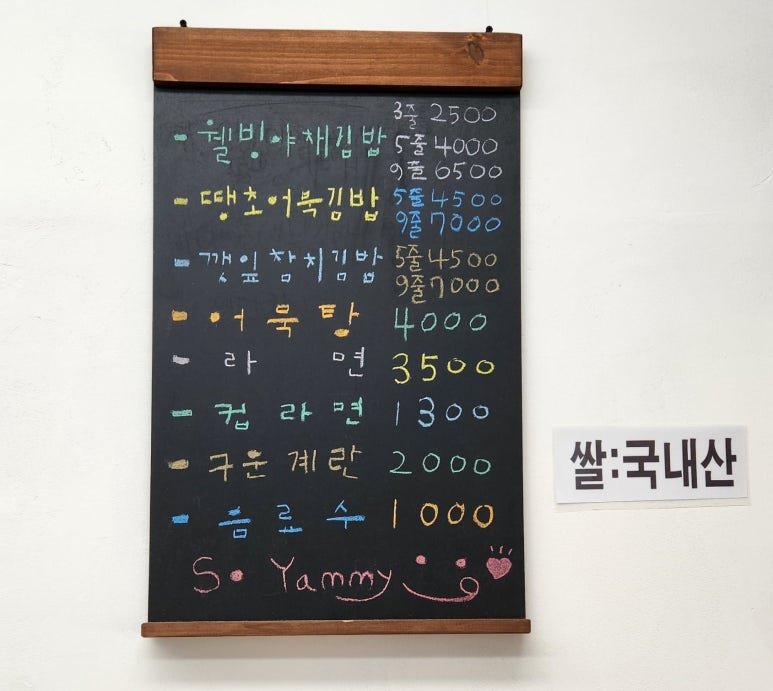 3줄 2500
- 웰빙야채김밥 5줄 4000
9줄 6500
- 땡초어묵김밥 5줄 4500
9줄 7000
- 깻잎참치김밥 5줄 4500
9줄 7000
- 어묵탕 4000
- 라면 3500
- 컵라면 1300
- 구운계란 2000
- 음료수 1000
So Yammy
쌀:국내산